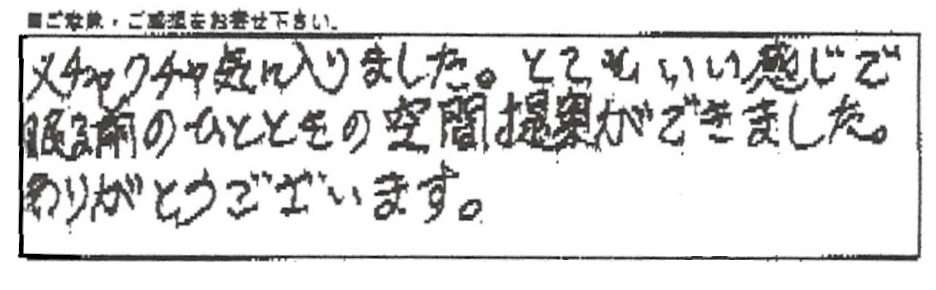 ■ご意見・ご感想をお寄せ下さい。
メチャクチャ気に入りました。とてもいい感じで
眠る前のひとときの空間提案ができました。
ありがとうございます。